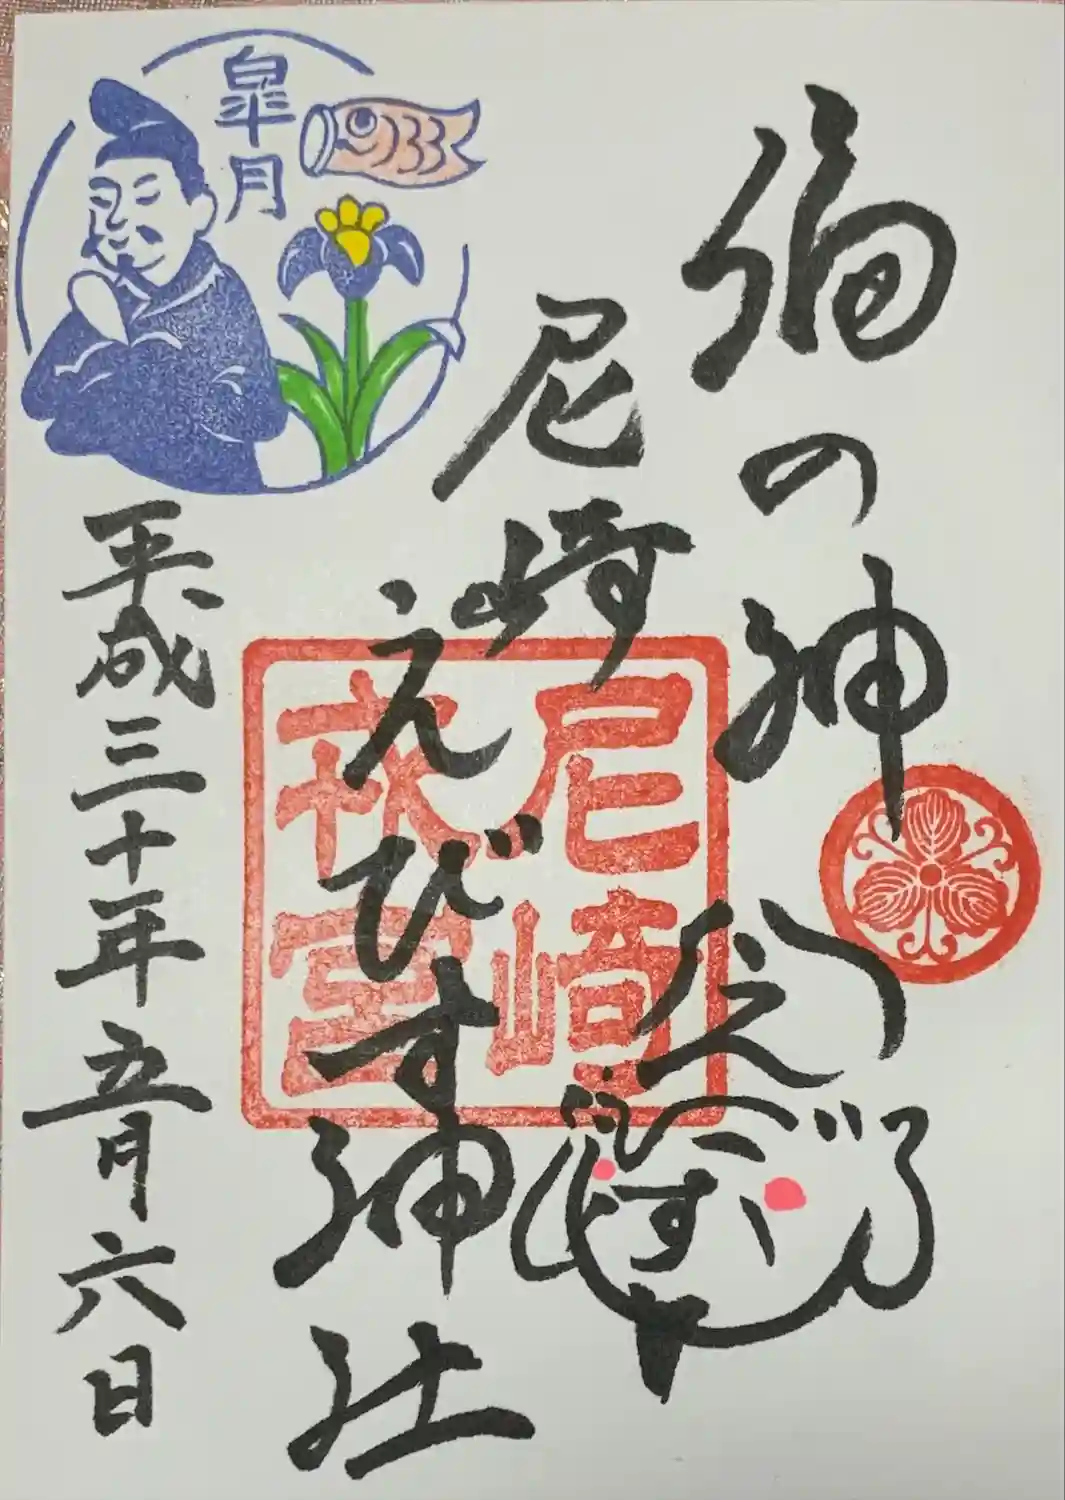 福の神
尼崎
えびす神社
尼崎
戎宮
皐月
平成三十年五月六日